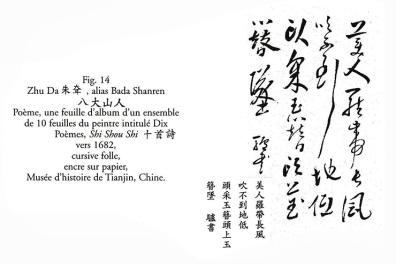 Fig. 14
Zhu Da 朱耷 , alias Bada Shanren
八大山人
Poème, une feuille d'album d'un ensemble
de 10 feuilles du peintre intitulé Dix
Poèmes, Shi Shou Shi 十首詩
vers 1682,
cursive folle,
encre sur papier,
Musée d'histoire de Tianjin, Chine.
美人羅帶長風
吹不到地低
頭采玉簪頭上玉
簪墜 驢書
美人羅帶長風
吹不到地低
頭采玉簪頭上玉
簪墜 驢書